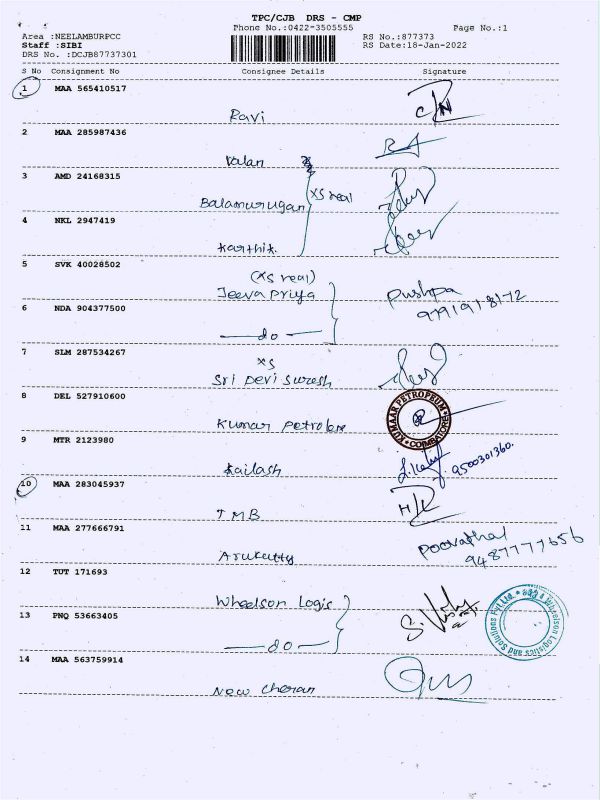 TPC/CJB DRS - CMP
Phone No.:0422-3505555 Page No.:1
Area :NEELAMBURPCC RS No.:877373
Staff :SIBI RS Date:18-Jan-2022
DRS No. :DCJB87737301
S No Consignment No Consignee Details Signature
1 MAA 565410517
Ravi
2 MAA 285987436
Kalan
3 AMD 24168315
Balamurugan XS real
4 NKL 2947419
Karthik.
5 SVK 40028502
(XS real)
Jeeva priya Pushpa
9791918172
6 NDA 904377500
do
7 SLM 287534267
XS
Sri Devi Suresh
8 DEL 527910600
Kumar Petrolem
KUMAAR PETROPEUM
COIMBATORE
9 MTR 2123980
Kailash 9500301360.
10 MAA 283045937
TMB
11 MAA 277666791
Arukutty Poovathal
9487777656
12 TUT 171693
Wheelson Logis
13 PNQ 53663405
do
Wheelson Logistics and Solutions Pvt Ltd.
14 MAA 563759914
New Cheran